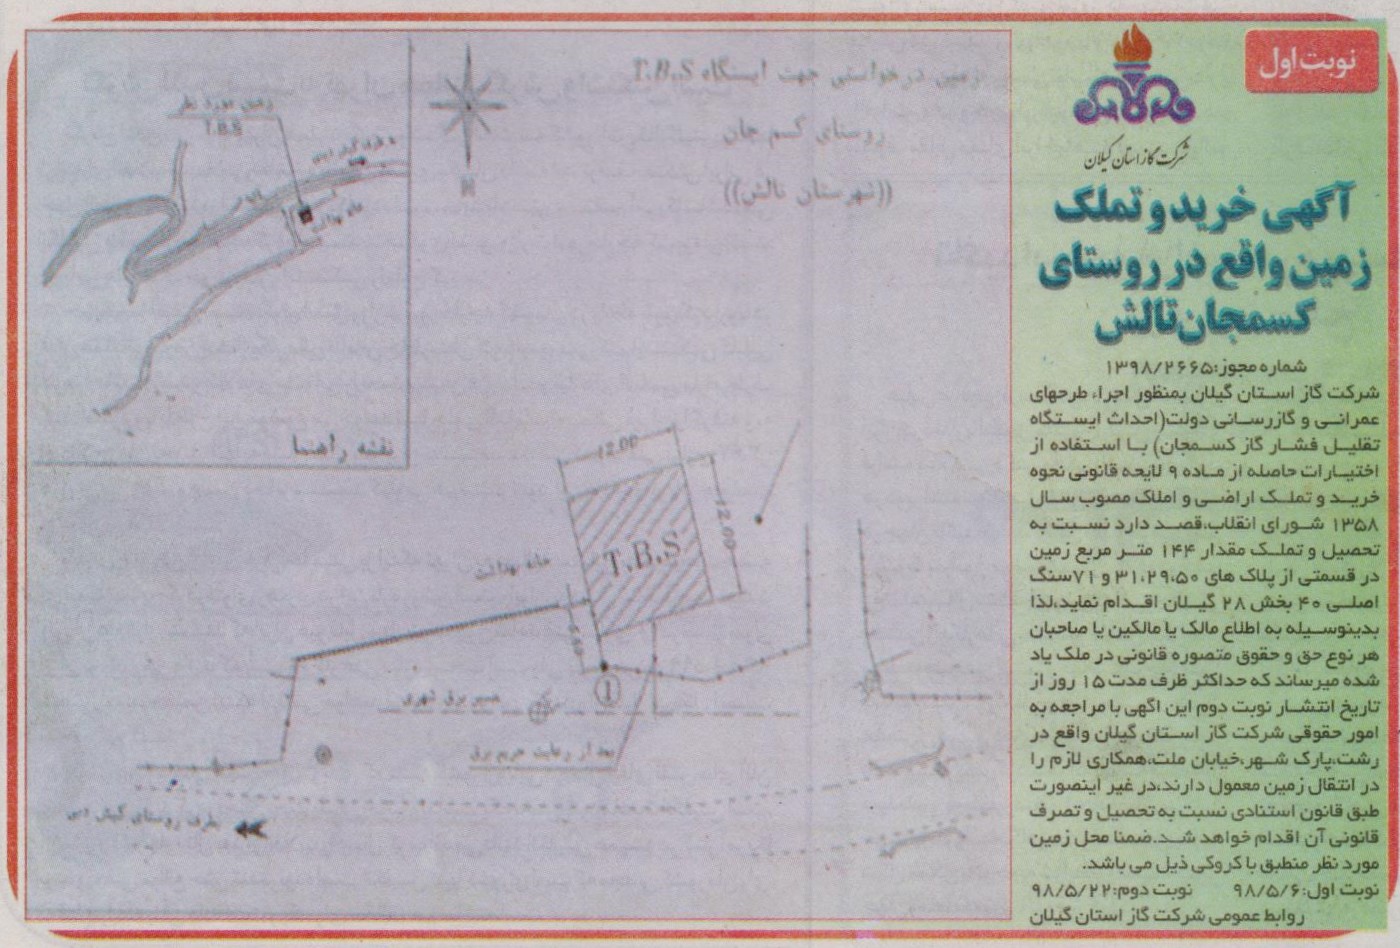 نوبت اول
شرکت گاز استان گیلان
آگهی خرید و تملک
زمین واقع در روستای
کسمجان تالش
شماره مجوز:۱۳۹۸/۲۶۶۵
شرکت گاز استان گیلان بمنظور اجراء طرحهای
عمرانی و گازرسانی دولت(احداث ایستگاه
تقلیل فشار گاز کسمجان) با استفاده از
اختیارات حاصله از ماده ۹ لایحه قانونی نحوه
خرید و تملک اراضی و املاک مصوب سال
۱۳۵۸ شورای انقلاب،قصد دارد نسبت به
تحصیل و تملک مقدار ۱۴۴ متر مربع زمین
در قسمتی از پلاک های ۳۱،۲۹،۵۰ و ۷۱سنگ
اصلی ۴۰ بخش ۲۸ گیلان اقدام نماید،لذا
بدینوسیله به اطلاع مالک یا مالکین یا صاحبان
هر نوع حق و حقوق متصوره قانونی در ملک یاد
شده میرساند که حداکثر ظرف مدت ۱۵ روز از
تاریخ انتشار نوبت دوم این اگهی با مراجعه به
امور حقوقی شرکت گاز استان گیلان واقع در
رشت،پارک شهر،خیابان ملت،همکاری لازم را
در انتقال زمین معمول دارند،در غیر اینصورت
طبق قانون استنادی نسبت به تحصیل و تصرف
قانونی آن اقدام خواهد شد.ضمنا محل زمین
مورد نظر منطبق با کروکی ذیل می باشد.
نوبت اول:۹۸/۵/۶ نوبت دوم:۹۸/۵/۲۲
روابط عمومی شرکت گاز استان گیلان
زمین درخواستی جهت ایستگاه T.B.S
روستای کسم جان
((شهرستان تالش))
N
زمین مورد نظر
T.B.S
خانه بهداشت
نقشه راهنما
12.00
12.00
T.B.S
خانه بهداشت
1
مسیر برق شهری
بعد از رعایت حریم برق
بطرف روستای گیش دبی